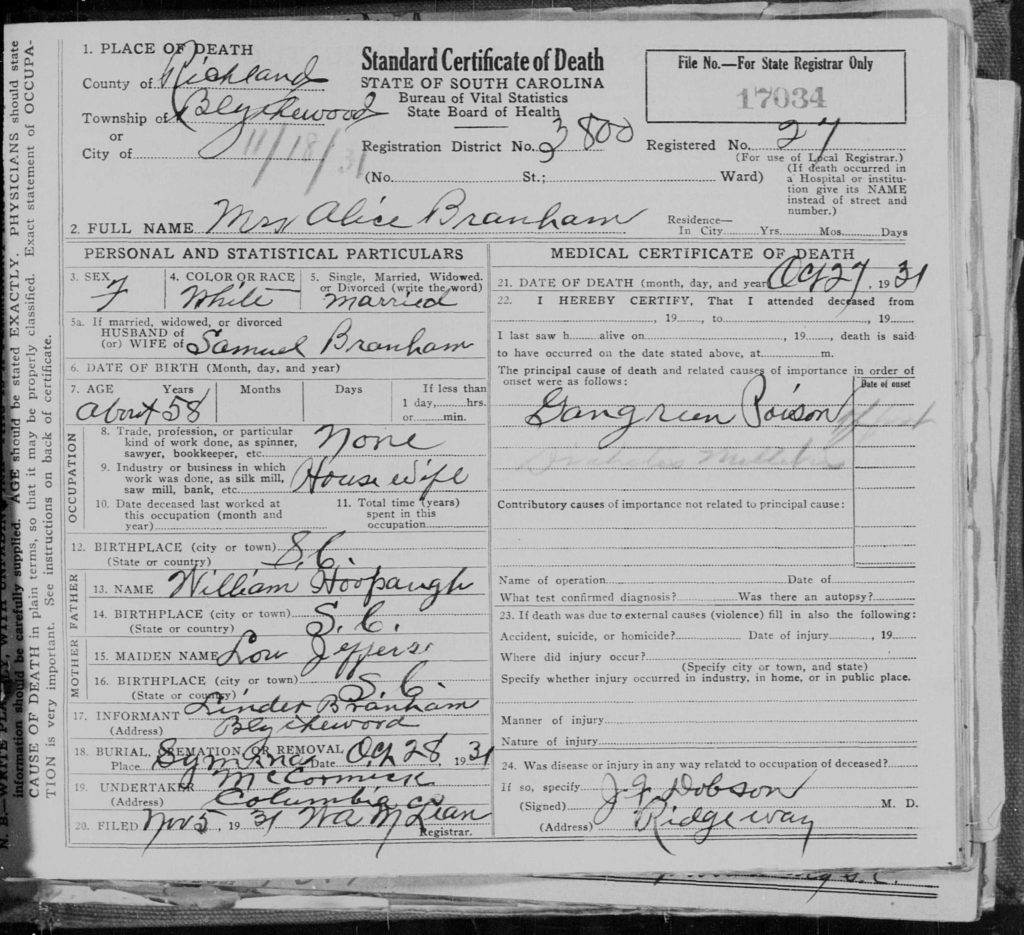 N. B.—WRITE PLAINLY, WITH UNFADING
information should be carefully supplied. AGE should be stated EXACTLY. PHYSICIANS should state
CAUSE OF DEATH in plain terms, so that it may be properly classified. Exact statement of OCCUPA-
TION is very important. See instructions on back of certificate.
1. PLACE OF DEATH
County of Richland
Township of Blythewood
or
City of
11/18/31
Standard Certificate of Death
STATE OF SOUTH CAROLINA
Bureau of Vital Statistics
State Board of Health
File No.—For State Registrar Only
17034
Registration District No. 3800
Registered No. 27
(For use of Local Registrar.)
(No. St.; Ward)
(If death occurred in
a Hospital or institu-
tion give its NAME
instead of street and
number.)
2. FULL NAME Mrs Alice Branham
Residence—
In City Yrs. Mos. Days
PERSONAL AND STATISTICAL PARTICULARS
3. SEX F
4. COLOR OR RACE White
5. Single, Married, Widowed,
or Divorced (write the word)
Married
5a. If married, widowed, or divorced
HUSBAND of
(or) WIFE of Samuel Branham
6. DATE OF BIRTH (Month, day, and year)
7. AGE Years Months Days If less than
1 day, hrs.
or min.
About 58
OCCUPATION
8. Trade, profession, or particular
kind of work done, as spinner,
sawyer, bookkeeper, etc. None
9. Industry or business in which
work was done, as silk mill,
saw mill, bank, etc. House wife
10. Date deceased last worked at
this occupation (month and
year)
11. Total time (years)
spent in this
occupation
12. BIRTHPLACE (city or town) S.C.
(State or country)
FATHER
13. NAME William Hoopaugh
14. BIRTHPLACE (city or town) S.C.
(State or country)
MOTHER
15. MAIDEN NAME Lou Jeffers
16. BIRTHPLACE (city or town) S.C.
(State or country)
17. INFORMANT Linder Branham
(Address) Blythewood
18. BURIAL, CREMATION OR REMOVAL
Place Symrna Date Oct 28, 1931
19. UNDERTAKER McCormick
(Address) Columbia
20. FILED Nov 5, 1931 Wa McLean
Registrar.
MEDICAL CERTIFICATE OF DEATH
21. DATE OF DEATH (month, day, and year) Oct 27, 1931
22. I HEREBY CERTIFY, That I attended deceased from
, 19 , to , 19
I last saw h alive on , 19 , death is said
to have occurred on the date stated above, at m.
The principal cause of death and related causes of importance in order of
onset were as follows:
Date of onset
Gangreen Poison
Contributory causes of importance not related to principal cause:
Name of operation Date of
What test confirmed diagnosis? Was there an autopsy?
23. If death was due to external causes (violence) fill in also the following:
Accident, suicide, or homicide? Date of injury , 19
Where did injury occur?
(Specify city or town, and state)
Specify whether injury occurred in industry, in home, or in public place.
Manner of injury
Nature of injury
24. Was disease or injury in any way related to occupation of deceased?
If so, specify
(Signed) J. F. Dobson M. D.
(Address) Ridgeway